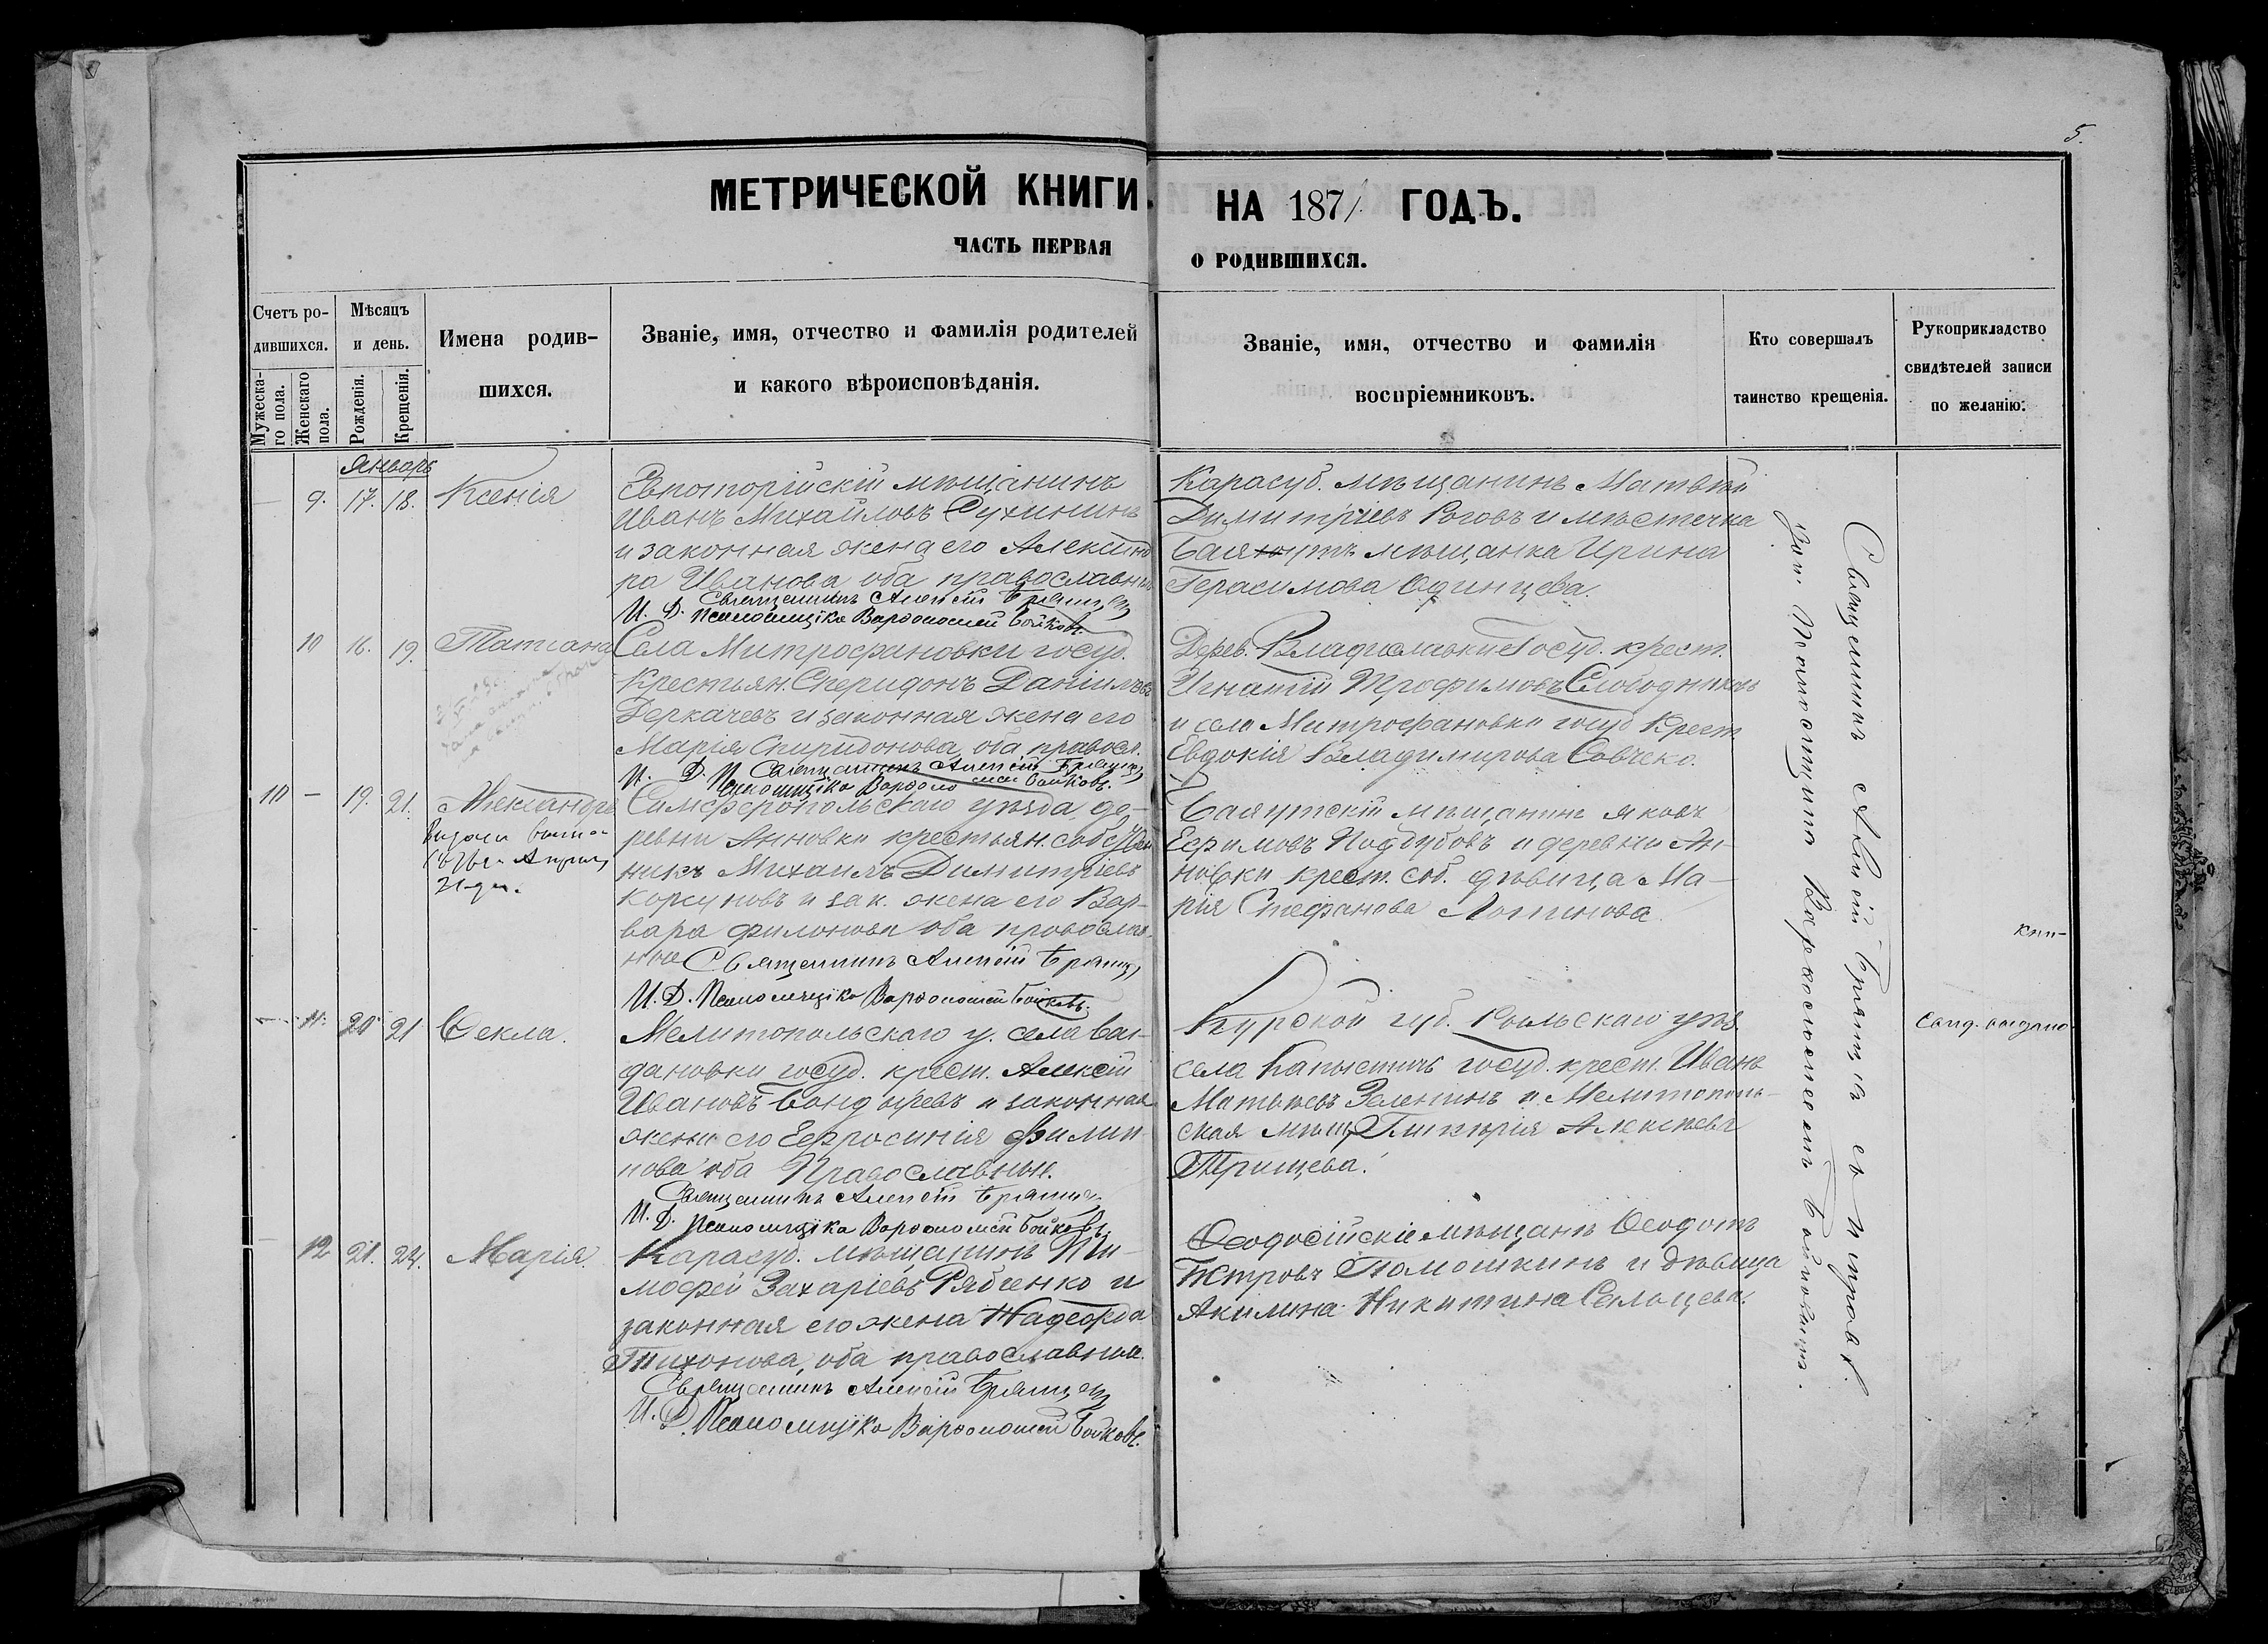 5.
МЕТРИЧЕСКОЙ КНИГИ НА 1871 ГОДЪ.
ЧАСТЬ ПЕРВАЯ О РОДИВШИХСЯ.
Счетъ родившихся.
Мужескаго пола.
Женскаго пола.
Мѣсяцъ и день.
Рожденія.
Крещенія.
Имена родив-
шихся.
Званіе, имя, отчество и фамилія родителей
и какого вѣроисповѣданія.
Званіе, имя, отчество и фамилія
воспріемниковъ.
Кто совершалъ
таинство крещенія.
Рукоприкладство
свидѣтелей записи
по желанію.
Январь
9. 17. 18. Ксенія
Евпаторійскій мѣщанинъ
Иванъ Михайловъ Сухининъ
и законная жена его Александ
ра Иванова оба православные
Священникъ Алексій Брянцевъ
И. Д. Псаломщика Варѳоломей Бойковъ.
Карасуб. мѣщанинъ Матвѣй
Димитріевъ Роговъ и мѣстечка
Баяутъ мѣщанка Ирина
Герасимова Одинцева.
10 16. 19. Татіана
Села Митрофановки госуд.
Крестьян. Спиридонъ Даніиловъ
Деркачевъ и законная жена его
Марія Спиридонова, оба правосл.
Священникъ Алексій Брянцевъ
И. Д. Псаломщика Варѳоломей Бойковъ.
Дерев. Госуд. крест.
Игнатій Трофимовъ Слободниковъ
и села Митрофановки госуд. Крест.
Евдокія Владимирова Савчеко.
10 – 19. 21. Александръ
Апрѣля
21 дня.
Симферопольскаго уѣзда, де-
ревни Анновки крестьян. собствен
никъ Михаилъ Димитріевъ
Корсуновъ и зак. жена его Вар-
вара Филонова оба православ-
ные Священникъ Алексій Брянцевъ
И. Д. Псаломщика Варѳоломей Бойковъ.
Баяутскій мѣщанинъ Яковъ
Ефимовъ Поддубовъ и деревни Ан-
новки крест. соб. дѣвица Ма-
рія Стефанова Логинова.
– 11. 20 21 Ѳекла.
Мелитопольскаго у. села Бог-
дановки госуд. крест. Алексій
Ивановъ Бондыревъ и законная
жена его Ефросинія Филип-
пова оба Православные.
Священникъ Алексій Брянцевъ
И. Д. Псаломщика Варѳоломей Бойковъ.
Курской губ. Рыльскаго уѣз.
села Капыстичъ госуд. крест. Иванъ
Матвѣевъ Зеленинъ и Мелитополь-
ская мѣщ. Гликерія Алексѣева
Трищева.
12 21. 24. Марія.
Карасуб. мѣщанинъ Ти-
мофей Захаріевъ Рябченко и
законная его жена Надежда
Тихонова, оба православные.
Священникъ Алексій Брянцевъ
И. Д. Псаломщика Варѳоломей Бойковъ.
Ѳеодосійскіе мѣщанъ Ѳеодотъ
Петровъ Толмошкинъ и дѣвица
Акилина Никитина Сельцева.
Священникъ Алексій Брянцевъ съ Исправл.
дол. Псаломщика Варѳоломеемъ Бойковымъ.